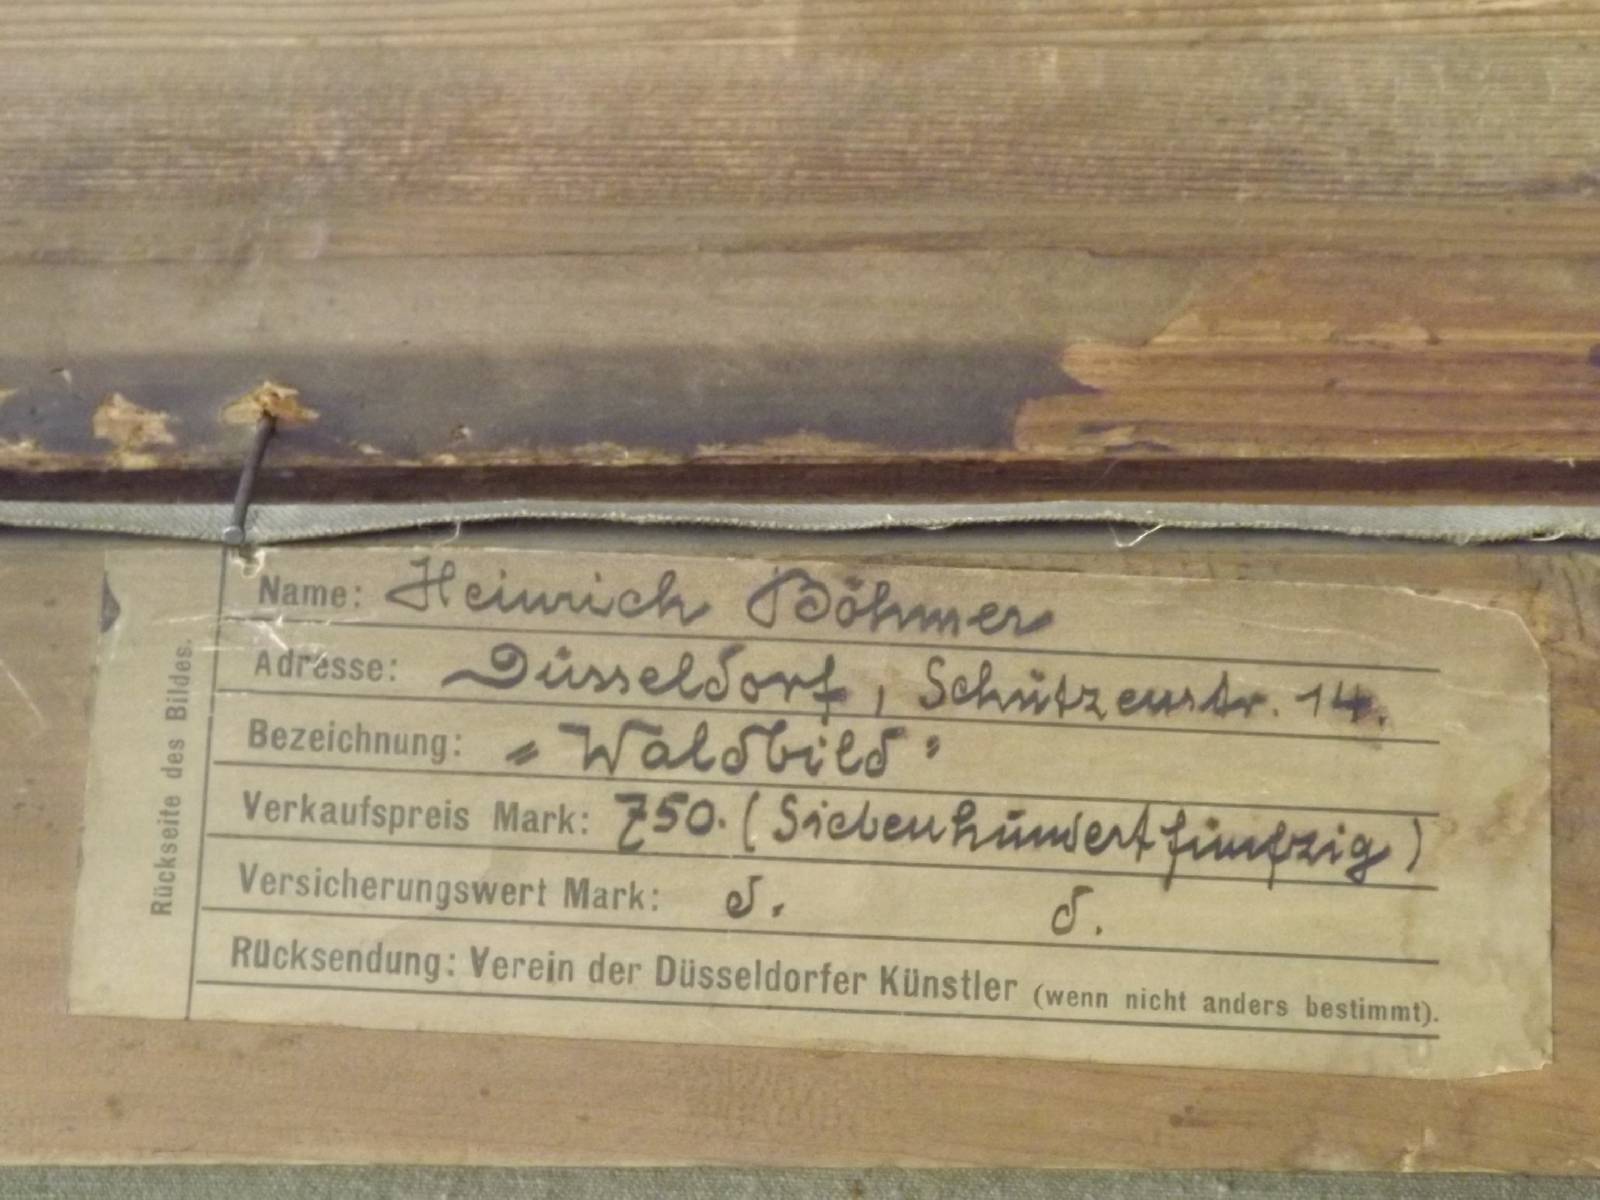 Rückseite des Bildes.
Name: Heinrich Böhmer
Adresse: Düsseldorf, Schützenstr. 14.
Bezeichnung: "Waldbild"
Verkaufspreis Mark: 750. (Siebenhundertfünfzig)
Versicherungswert Mark: d. d.
Rücksendung: Verein der Düsseldorfer Künstler (wenn nicht anders bestimmt).